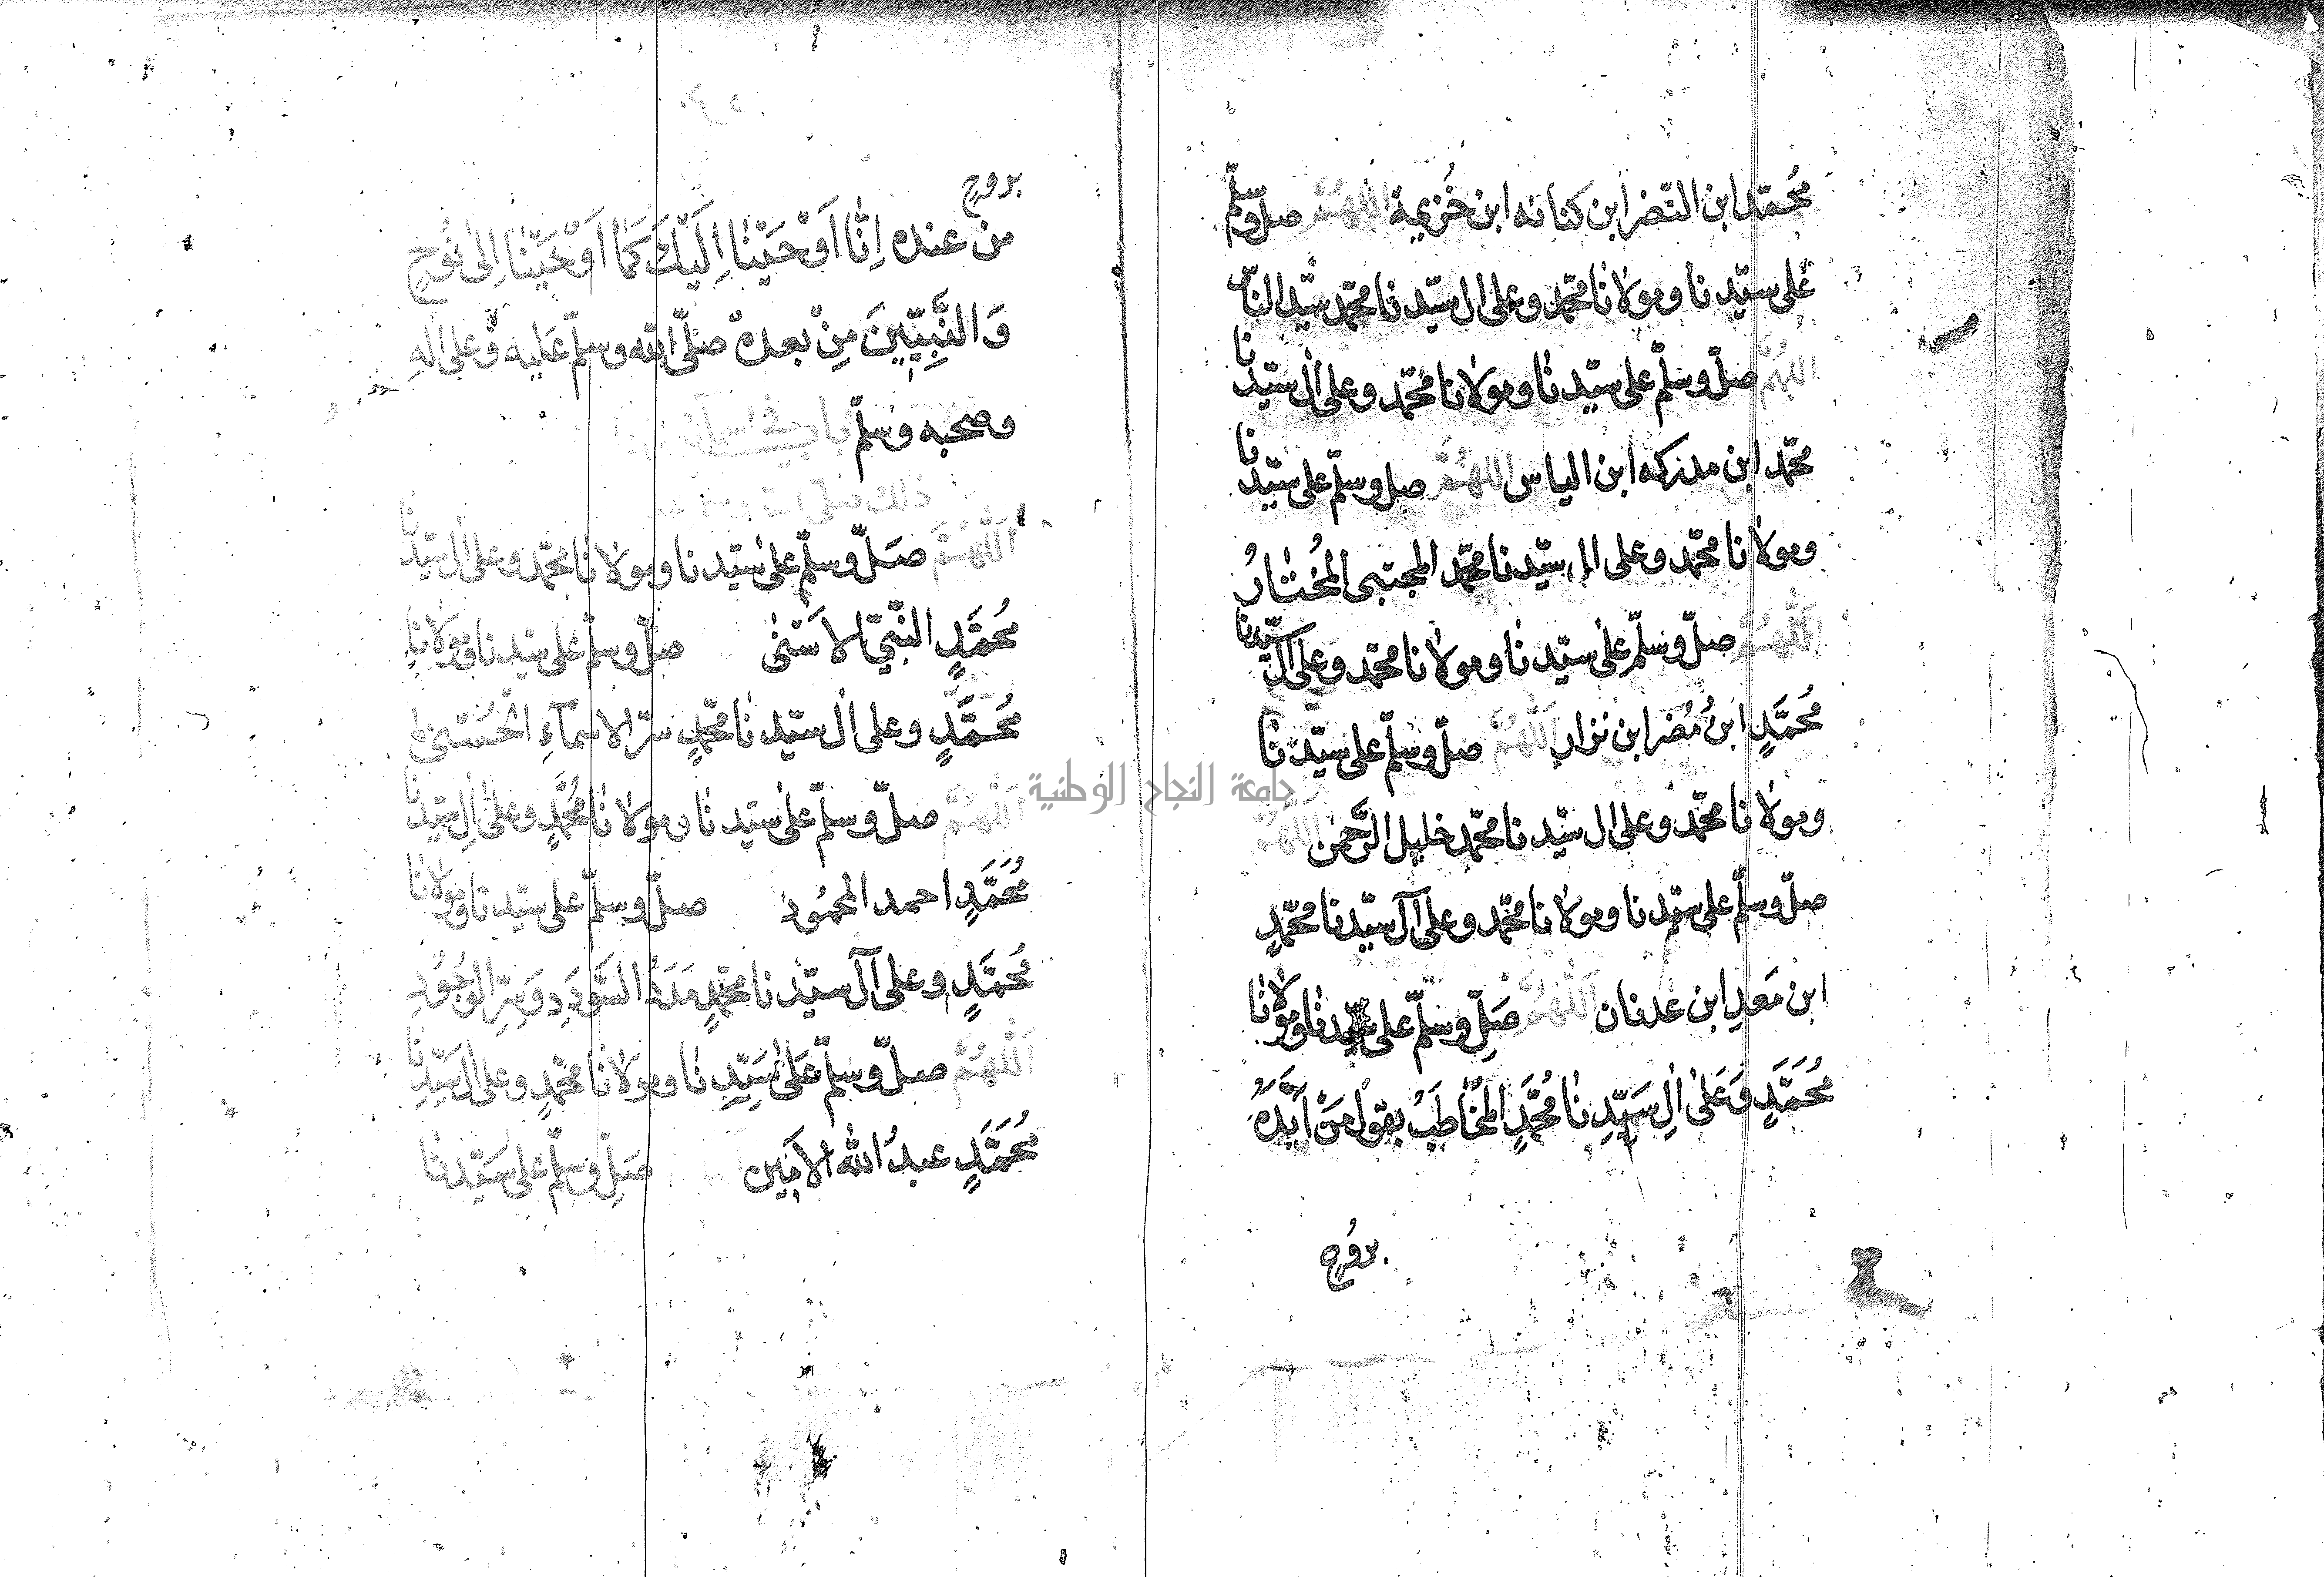 محمّد ابن النضر ابن كنانه ابن خُزيمة اللهُمَّ صل وسلّم
على سيّدنا ومولانا محمّد وعلى ال سيّدنا محمّد سيّد الناس
اللهُمَّ صلّ وسلّم على سيّدنا ومولانا محمّد وعلى ال سيّدنا
محمّد ابن مدركه ابن الياس اللهُمَّ صل وسلّم على سيّدنا
ومولانا محمّد وعلى ال سيّدنا محمّد المجتبى المُختارُ
اَللّهُمَّ صلّ وسلّم على سيّدنا ومولانا محمّد وعلى ال سيّدنا
مُحمَّدٍ ابنُ مُضر ابن نزار اَللّهُمَّ صلّ وسلّم على سيّدنا
ومولانا محمّد وعلى ال سيّدنا محمّد خليل الرَّحمن اللهمّ
صلّ وسلّم على سيّدنا ومولانا محمّد وعلى آل سيّدنا محمّدٍ
ابن مَعدِ ابن عدنان اَللّهُمَّ صَلّ وسلّم على سيّدنا ومولانا
مُحَمَّدٍ وَعَلىٰ اٰلِ سَيّدِنا مُحَمَّدٍ المخُاطَبُ بقول مَنْ اَيَّدَهُ
بروُحٍ
بروحٍ
من عنده اِنّٰا اَوْحَيْنٰا اِلَيْكَ كَمٰا اَوْحَيْنٰا اِلىٰ نُوُحٍ
وَالنَّبِيّينَ مِنْ بعدهْ صلّى الله وسلّم عَليه وعلى الهِ
وصحبه وسلّم
اَللّهُمَّ صَلّ وسلّم على سيّدنا ومولانا محمّد وعلى ال سيّدنا
مُحمَّدٍ النّبيّ الاَسَنىٰ صلّ وسلّم على سيّدنا ومولانا
مُحَمَّدٍ وعلى ال سيّدنا محمّدٍ سرّ الاسمآءِ الحُسنى
اَللّهُمَّ صلّ وسلّم على سيّدنا ومولانا مُحَمَّدٍ وعلى الِ سيّدنا
مُحَمَّدٍ احمد المحمُود صلّ وسلّم على سيّدنا ومولانا
مُحَمَّدٍ وعلى آل سيّدنا محمّدٍ مَدَدُ السَّودَدِ وَسِرِّ الوَجُودِ
اَللّهُمَّ صلّ وسلّم عَلىٰ سَيّدِنا ومولانا محمّدٍ وعلى ال سَيّدِنا
مُحَمَّدٍ عبدُ الله الاَمين صَلِّ وسلّم على سَيّدنا
جامعة النجاح الوطنية